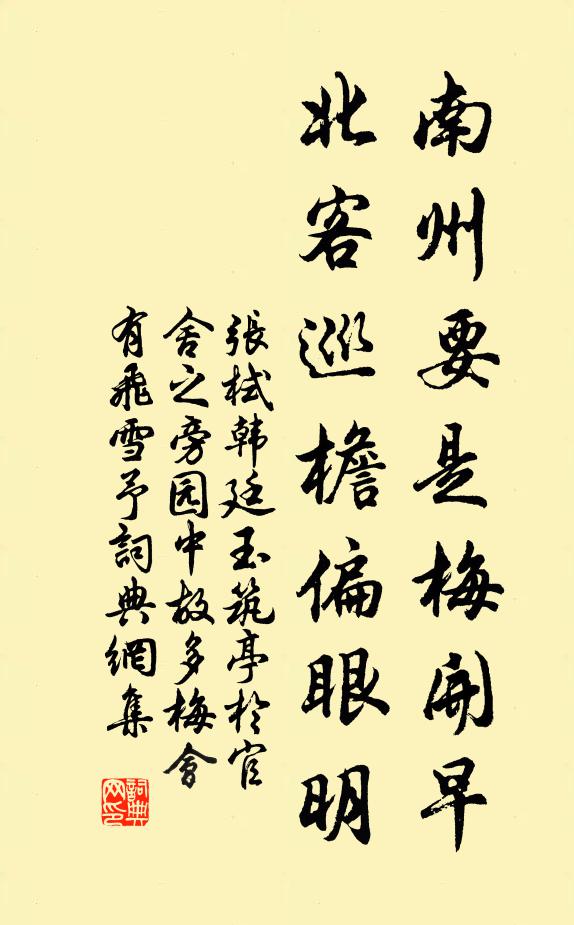 南州要是梅開早
北客巡檐偏眼明
張栻韩廷玉筑亭於官
舍之旁园中故多梅會
有飛雪予詞典網集
詞典网印